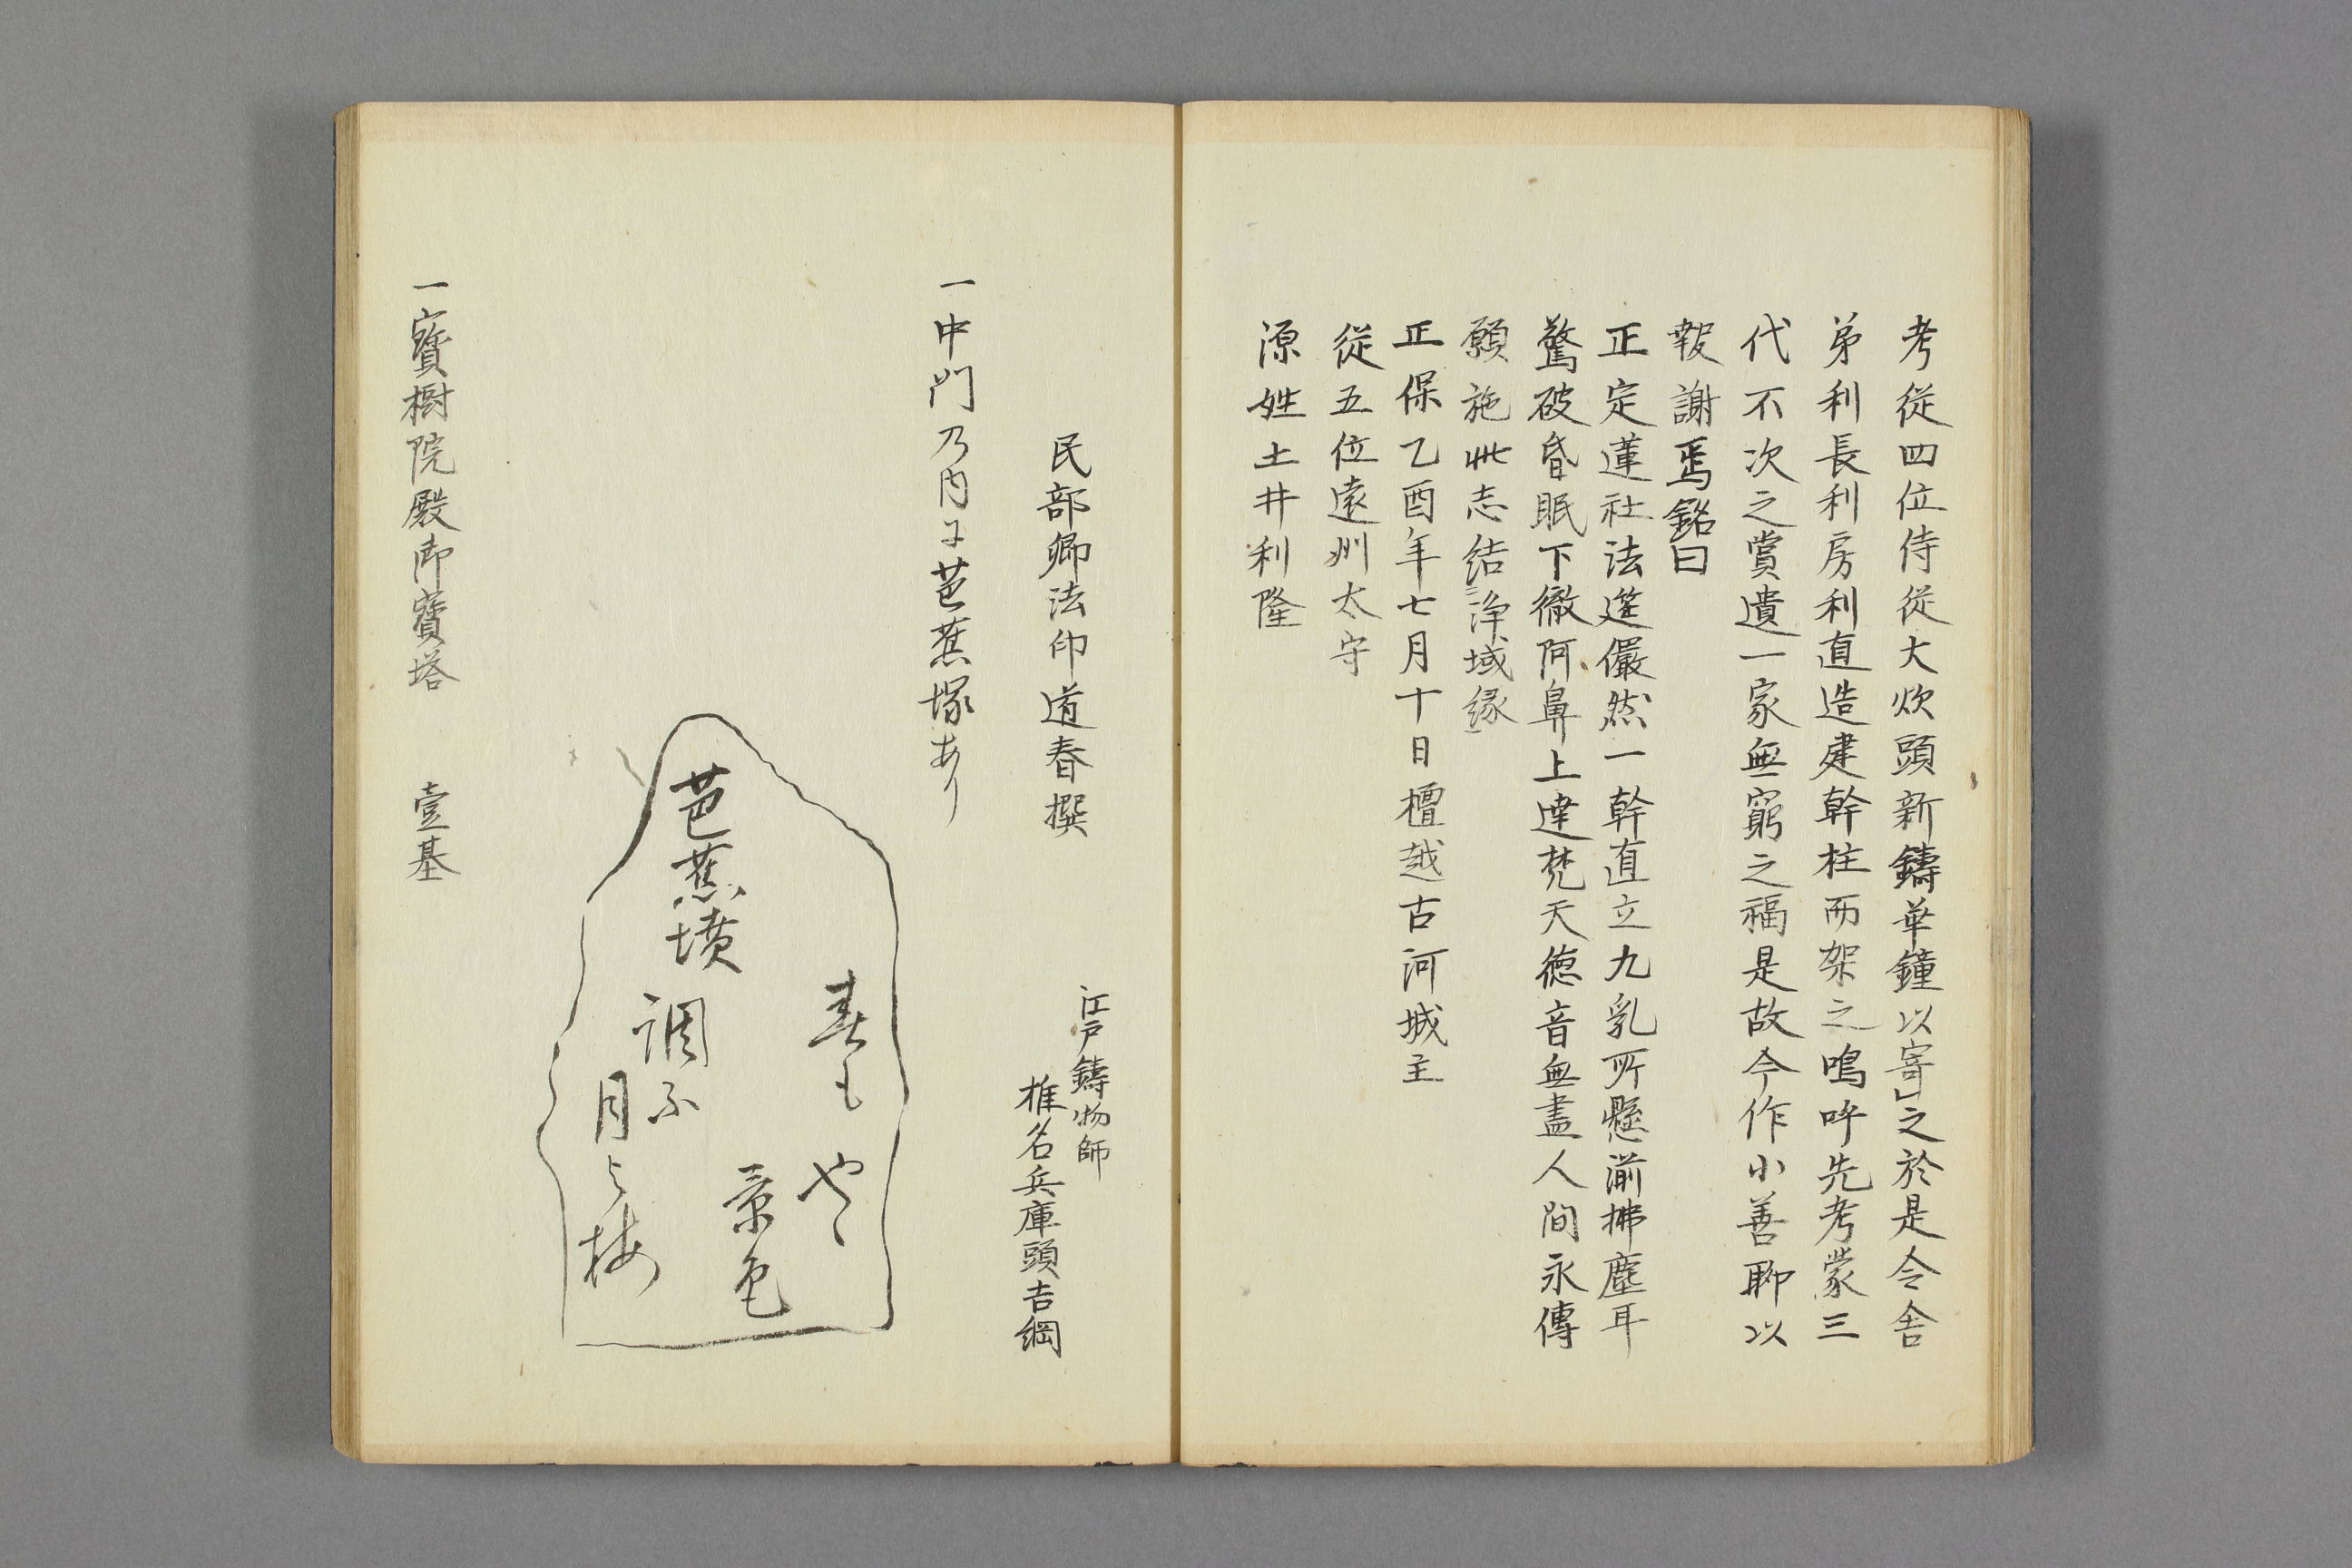 考從四位侍從大炊頭新鑄華鐘以寄」之於是令舎
弟利長利房利直造建幹柱而架之嗚呼先考蒙三
代不次之賞遺一家無窮之福是故今作小善聊以
報謝焉銘曰
正定蓮社法筵儼然一幹直立九乳所懸湔拂塵耳
驚破昏眠下徹阿鼻上達梵天徳音無盡人間永傳
願施此志結浄域縁
正保乙酉年七月十日檀越古河城主
從五位遠州太守
源姓土井利隆
民部卿法印道春撰
江戸鑄物師
椎名兵庫頭吉綱
一中門乃内に芭蕉塚あり
芭蕉墳
春もやゝ
景色
調ふ
月と梅
一寶樹院殿御寶塔　壹基